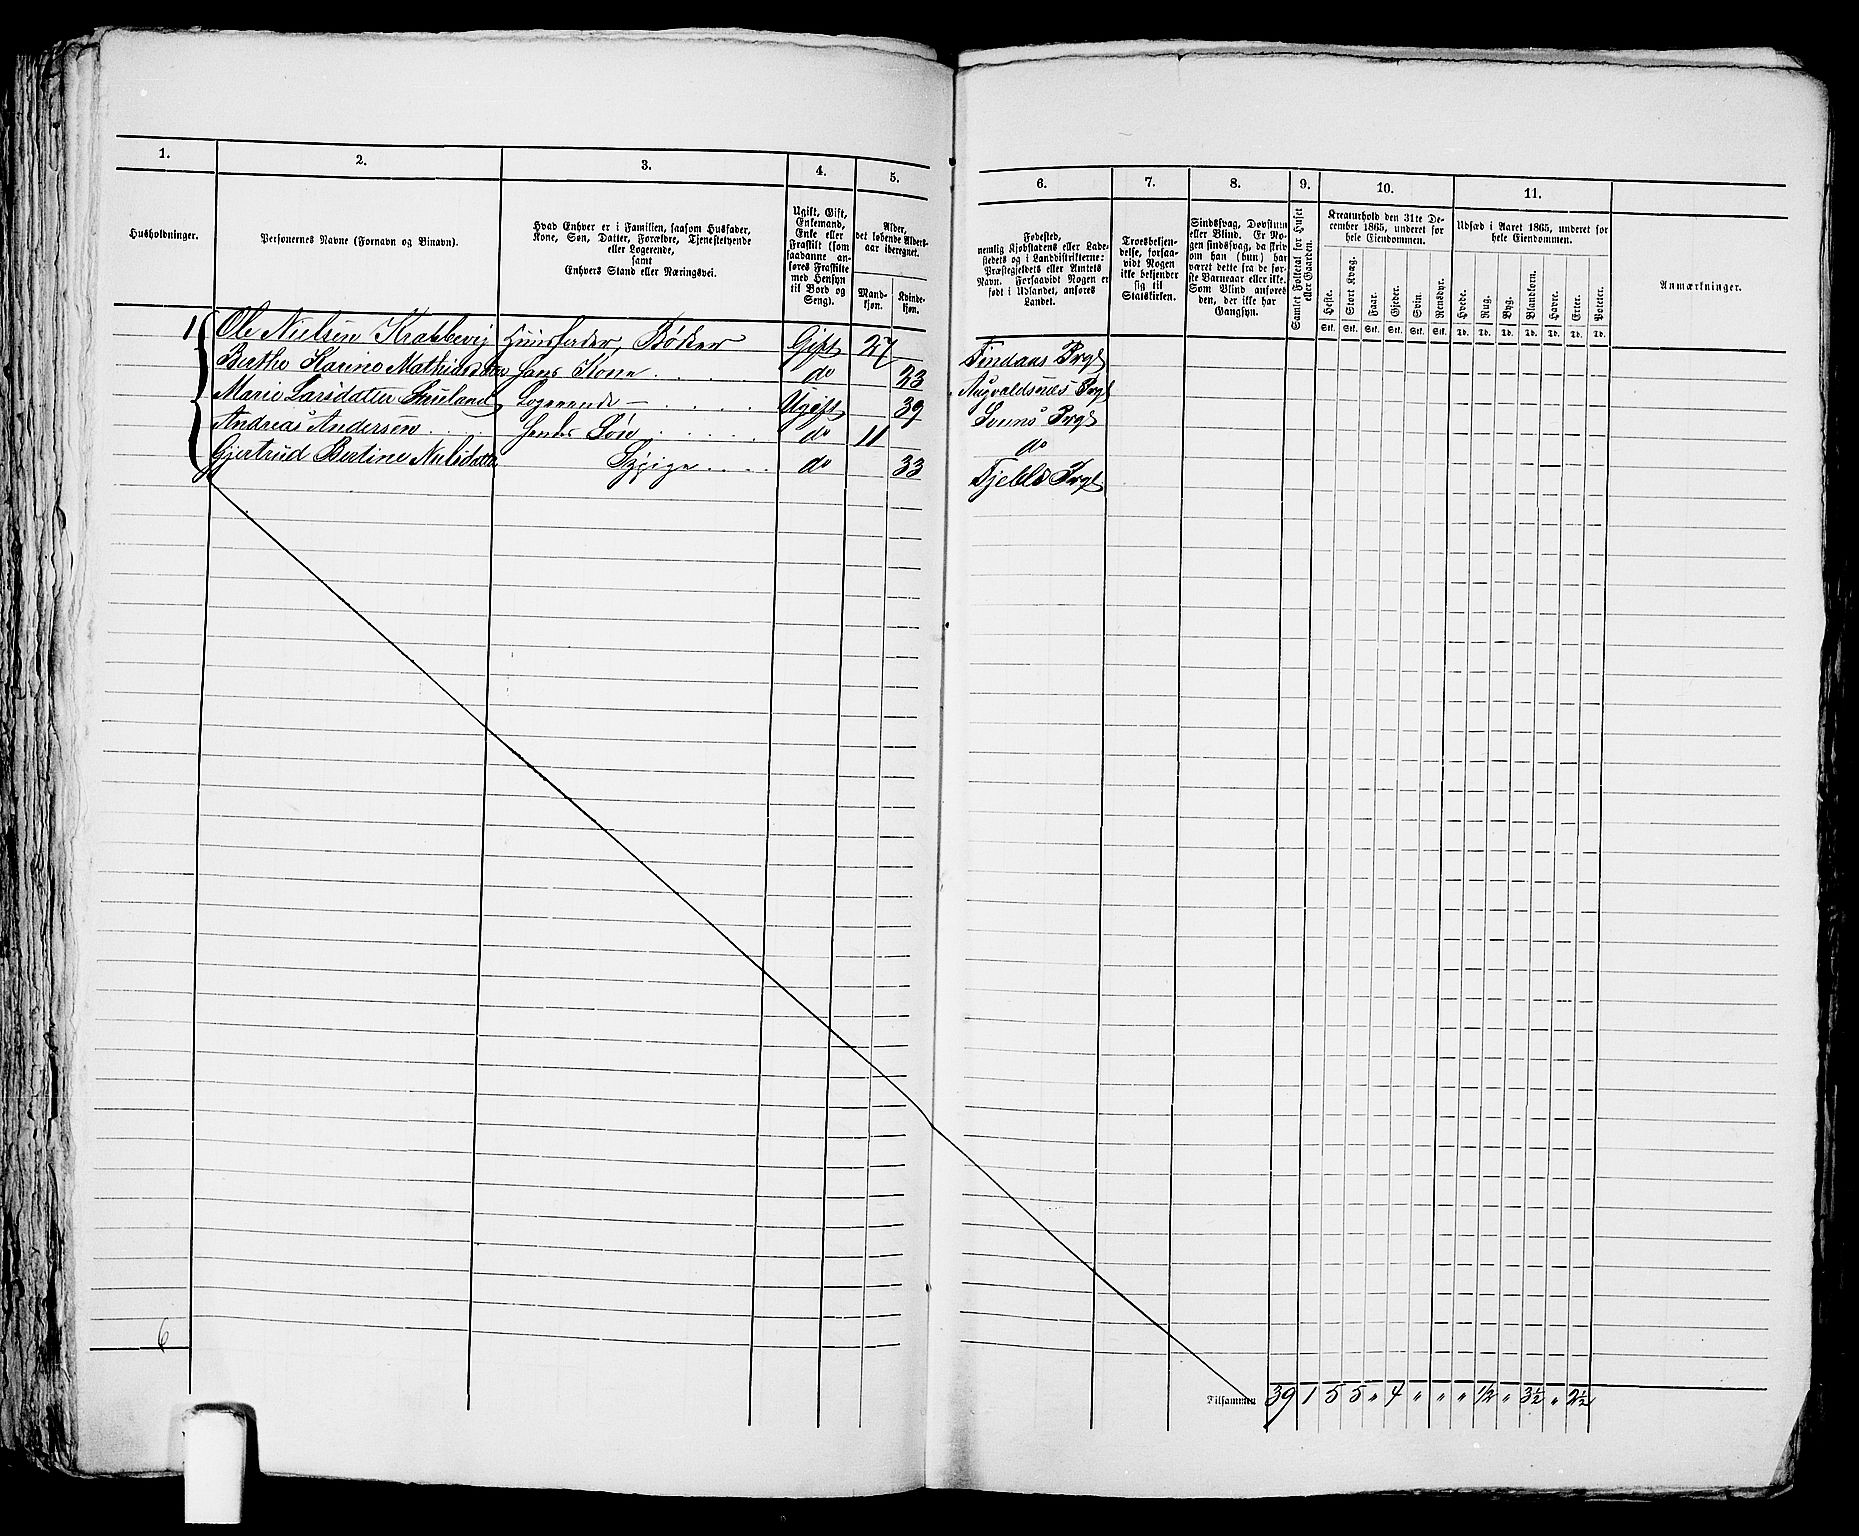 1.
2.
3.
4.
5.
Husholdninger.
Personernes Navne (Fornavn og Binavn).
Hvad Enhver er i Familien, saasom Husfader,
Kone, Søn, Datter, Forældre, Tjenestetyende
eller Logerende,
samt
Enhvers Stand eller Næringsvei.
Ugift, Gift,
Enkemand,
Enke eller
Fraskilt (som
saadanne an-
føres Fraskilte
med Hensyn
til Bord og
Seng).
Alder,
det løbende Alders-
aar iberegnet.
Mand-
kjøn.
Kvinde-
kjøn.
6.
7.
8.
9.
10.
11.
Fødested,
nemlig Kjøbstadens eller Lade-
stedets og i Landdistrikterne:
Præstegjeldets eller Amtets
Navn. Forsaavidt Nogen er
født i Udlandet, anføres
Landet.
Troesbekjen-
delse, forsaa-
vidt Nogen
ikke bekjender
sig til
Statskirken.
Sindssvag, Døvstum
eller Blind. Er No-
gen sindssvag, da skriv
om han (hun) har
været dette fra de før-
ste Barneaar eller ikke.
Som Blind anføres
den, der ikke har
Gangsyn.
Samlet Folketal for Huset
eller Gaarden.
Kreaturhold den 31te De-
cember 1865, underet for
hele Eiendommen.
Heste.
Stort Kvæg.
Faar.
Gjeder.
Svin.
Rensdyr.
Stk. Stk. Stk. Stk. Stk. Stk.
Udsæd i Aaret 1865, underet for
hele Eiendommen.
Hvede.
Rug.
Byg.
Blandkorn.
Havre.
Erter.
Poteter.
Td. Td. Td. Td. Td. Td. Td.
Anmærkninger.
1 Ole Nielsen Krabbevig Huusfader, Bødker Gift 27 Findaas Prgl
Berthe Karine Mathisdatter Hans Kone do 23 Augvaldsnæs Prgl
Marie Larsdatter Logerende Ugift 39 Prgl
Andreas Andersen Hendes Søn do 11 do
Gjertrud Bertine Nielsdatter do 33 Fjelds Prgl
6
Tilsammen 39 1 5 5 " 4 " " " 1/2 " 3 1/2 " 2 1/2